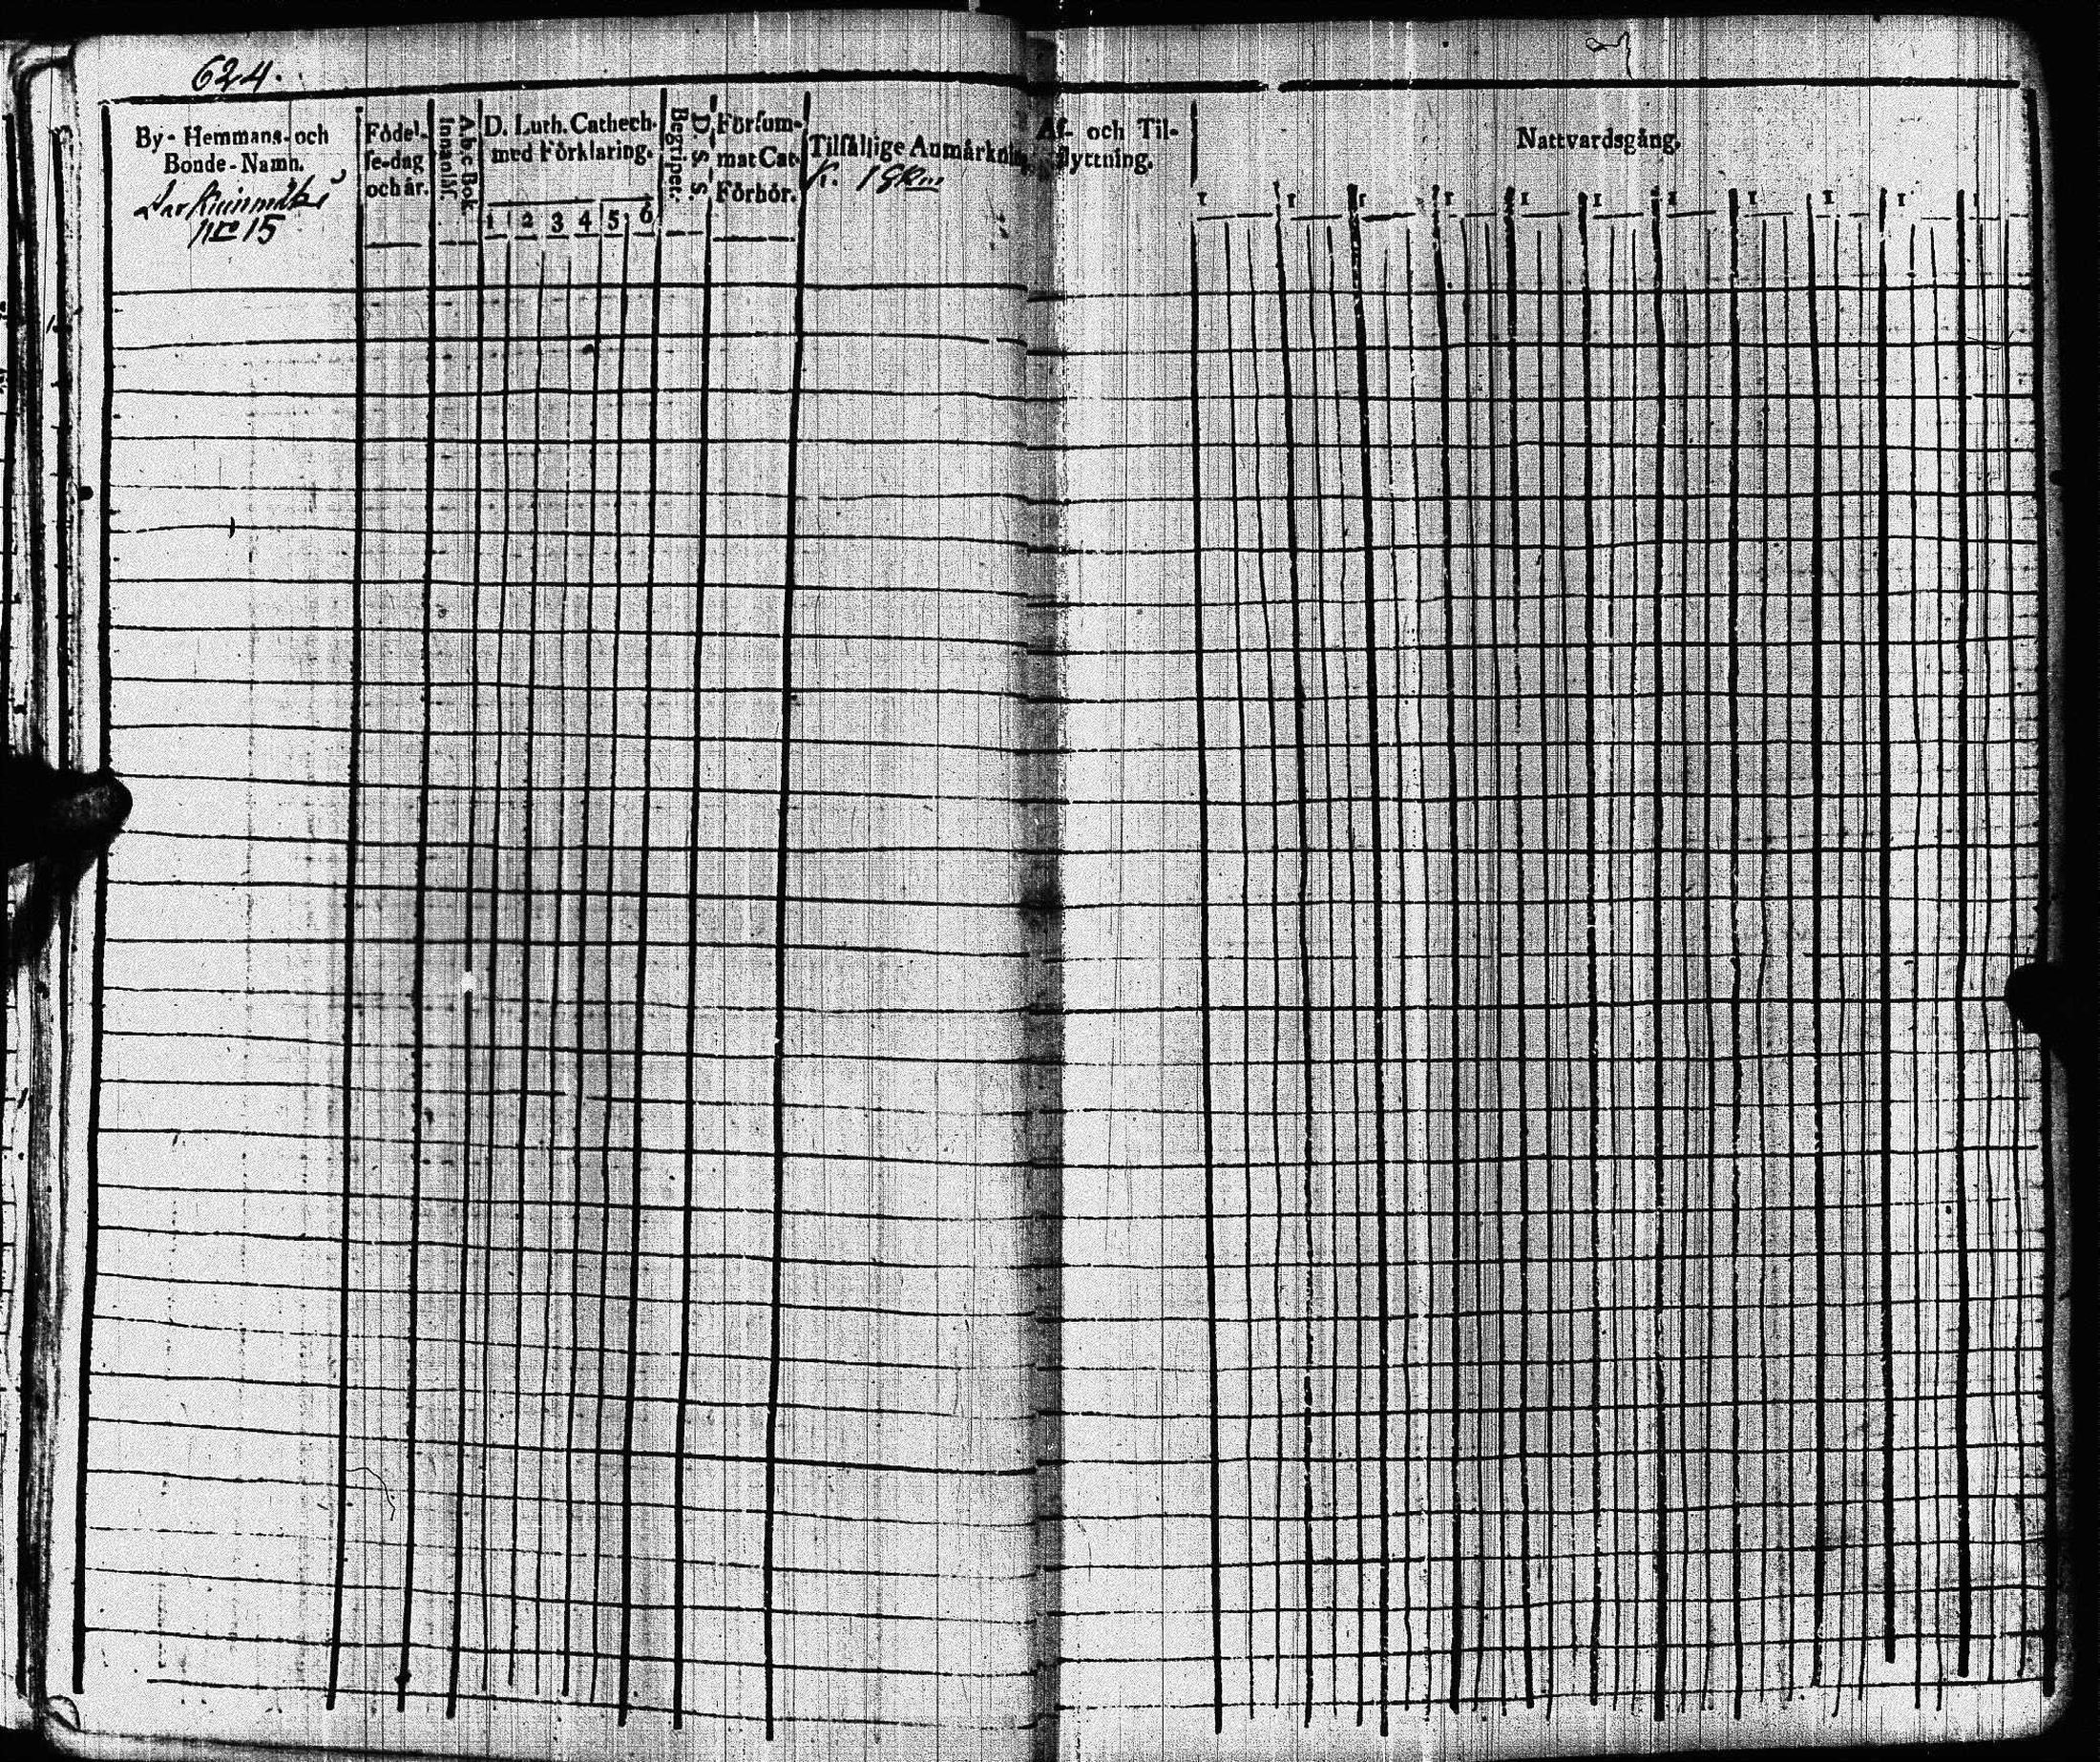 624.
By- Hemmans- och
Bonde-Namn.
nro 15
Födel-
se-dag
och år.
A b c Bok
Innanläs.
D. Luth. Cathech.
med Förklaring.
1 2 3 4 5 6
Begripet.
D. S. S.
Försum-
mat Cat.
Förhör.
Tilfällige Anmärknin
Af- och Til-
flyttning.
Nattvardsgång.
1 1 1 1 1 1 1 1 1 1 1